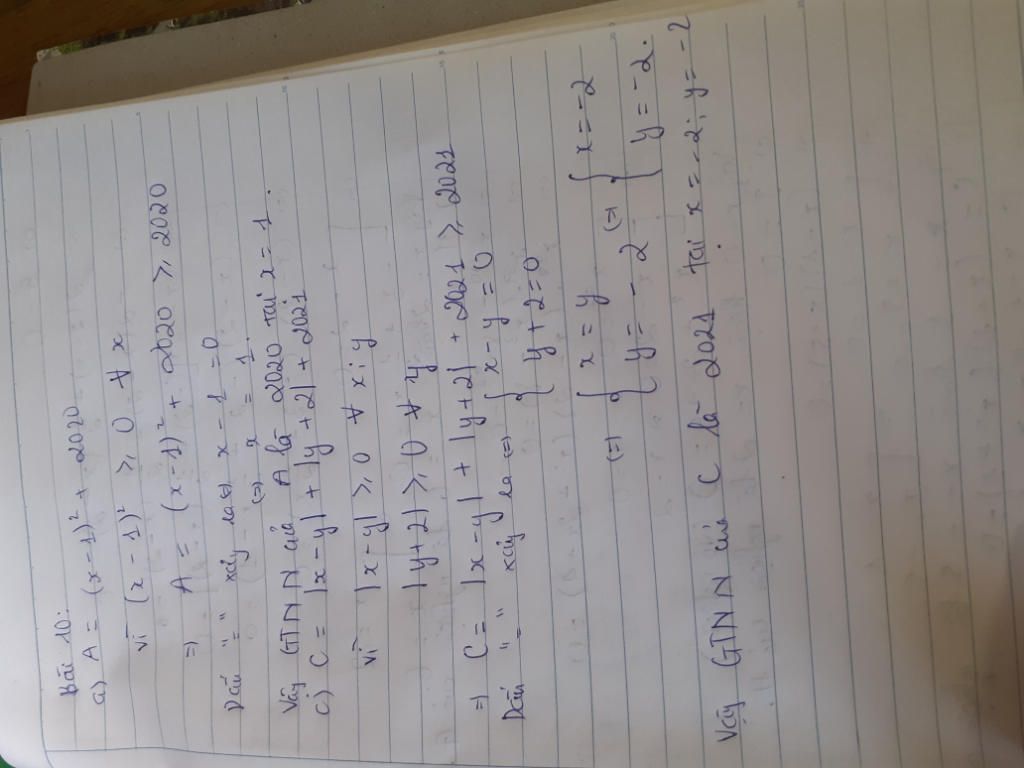 Bài 10:
a) A = (x-1)² + 2020
Vì (x-1)² ≥ 0 ∀ x
=> A = (x-1)² + 2020 ≥ 2020
Dấu "=" xảy ra (=) x - 1 = 0
(=) x = 1.
Vậy GTNN của A là 2020 tại x = 1.
c) C = |x-y| + |y+2| + 2021
Vì |x-y| ≥ 0 ∀ x; y
|y+2| ≥ 0 ∀ y
=> C = |x-y| + |y+2| + 2021 ≥ 2021
Dấu "=" xảy ra (=) { x - y = 0
{ y + 2 = 0
(=) { x = y (=) { x = -2
{ y = -2 { y = -2.
Vậy GTNN của C là 2021 tại x = -2; y = -2